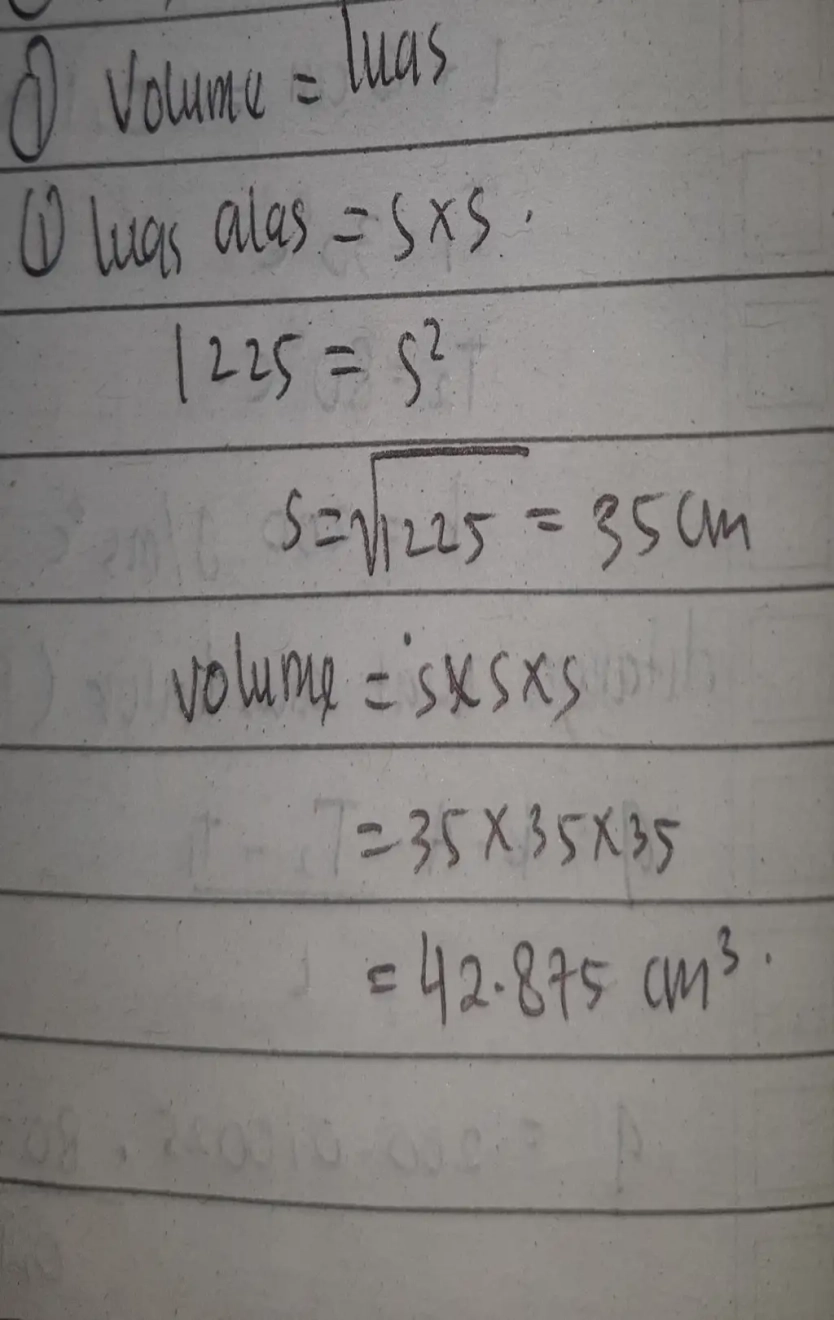 ① Volume = luas
① luas alas = s x s.
1225 = s²
s = √1225 = 35 cm
volume = s x s x s
= 35 x 35 x 35
= 42.875 cm³.